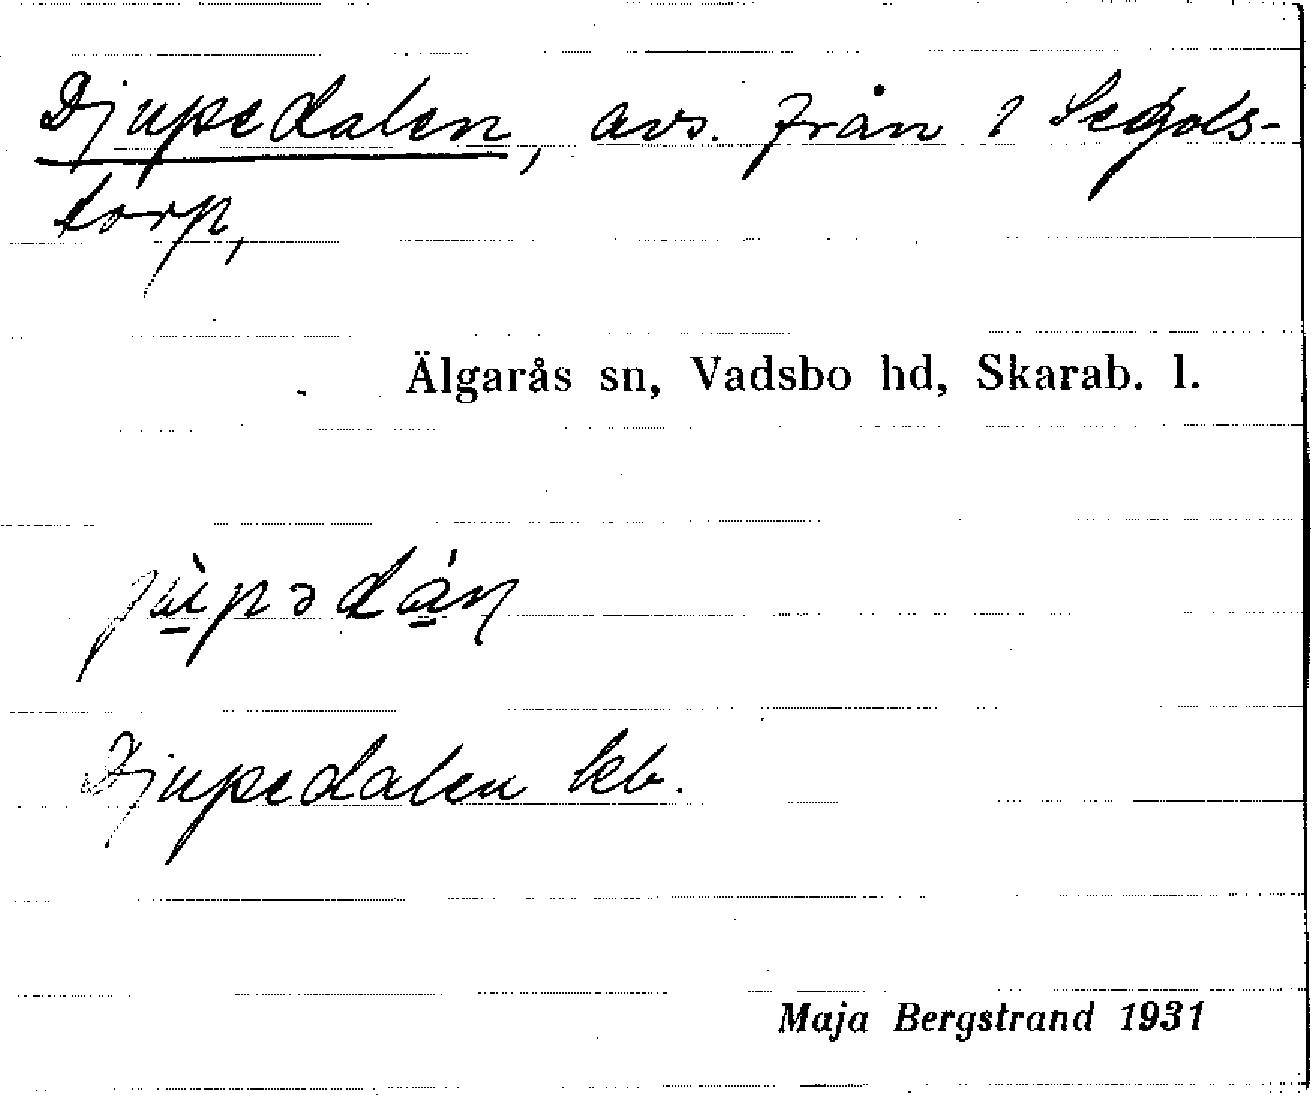 Djupedalen, avs. från 1 Segols-
torp,
Älgarås sn, Vadsbo hd, Skarab. l.
Djupedalen kb.
Maja Bergstrand 1931